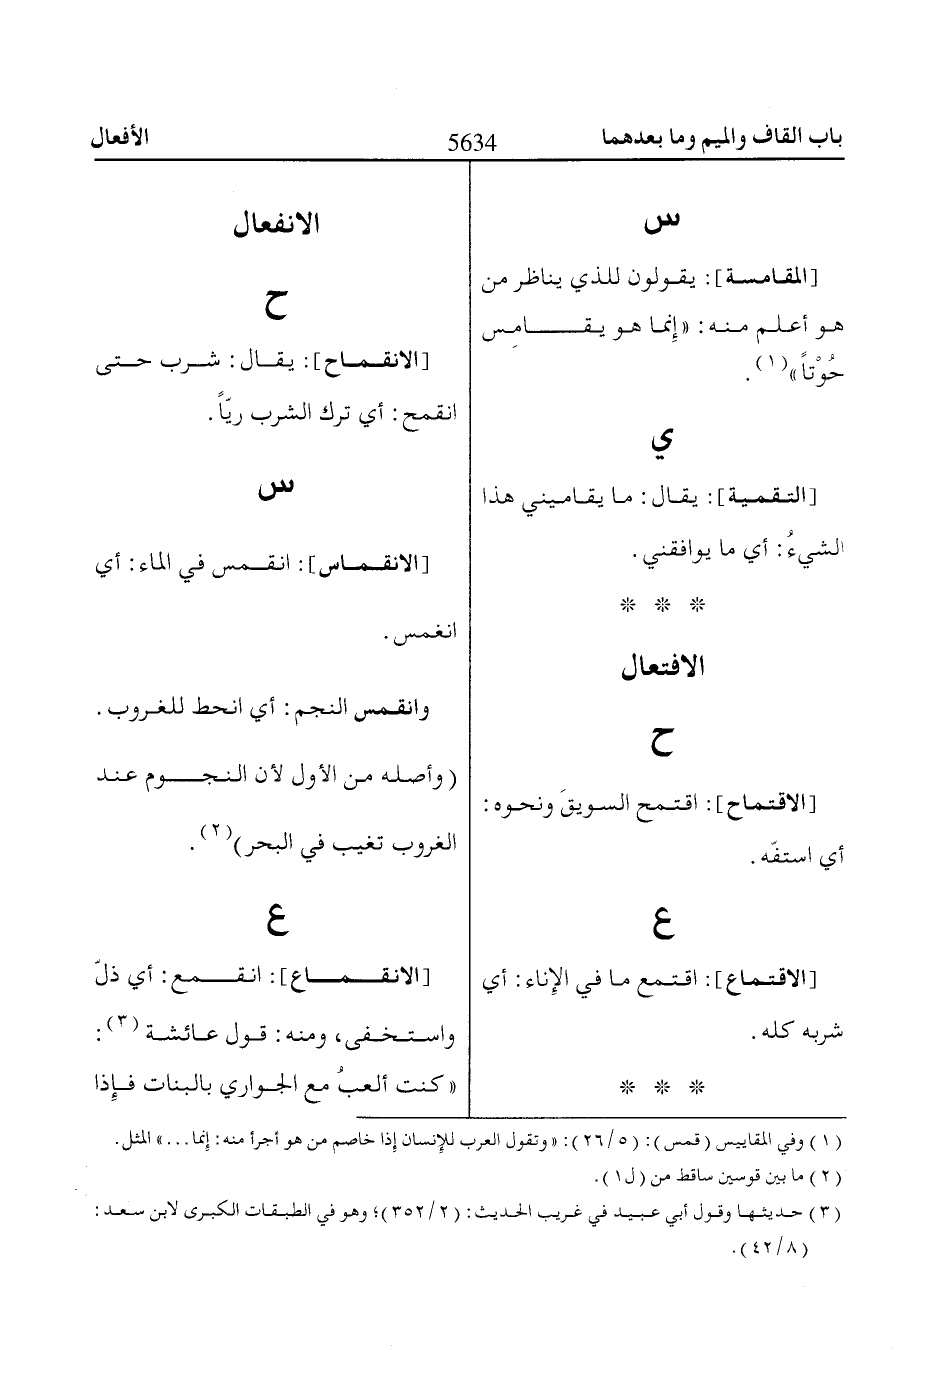 باب القاف والميم وما بعدهما
5634
الأفعال
س
[المقامسة]: يقولون للذي يناظر من
هو أعلم منه: «إنما هو يقامِس
حُوْتاً»(١).
ي
[التقمية]: يقال: ما يقاميني هذا
الشيءُ: أي ما يوافقني.
* * *
الافتعال
ح
[الاقتماح]: اقتمح السويقَ ونحوه:
أي استفّه.
ع
[الاقتماع]: اقتمع ما في الإناء: أي
شربه كله.
* * *
الانفعال
ح
[الانقماح]: يقال: شرب حتى
انقمح: أي ترك الشرب ريّاً.
س
[الانقماس]: انقمس في الماء: أي
انغمس.
وانقمس النجم: أي انحط للغروب.
(وأصله من الأول لأن النجوم عند
الغروب تغيب في البحر)(٢).
ع
[الانقماع]: انقمع: أي ذلّ
واستخفى، ومنه: قول عائشة(٣):
«كنت ألعبُ مع الجواري بالبنات فإذا
(١) وفي المقاييس (قمس): (٢٦/٥): «وتقول العرب للإنسان إذا خاصم من هو أجرأ منه: إنما...» المثل.
(٢) ما بين قوسين ساقط من (ل١).
(٣) حديثها وقول أبي عبيد في غريب الحديث: (٣٥٢/٢)؛ وهو في الطبقات الكبرى لابن سعد:
(٤٢/٨).